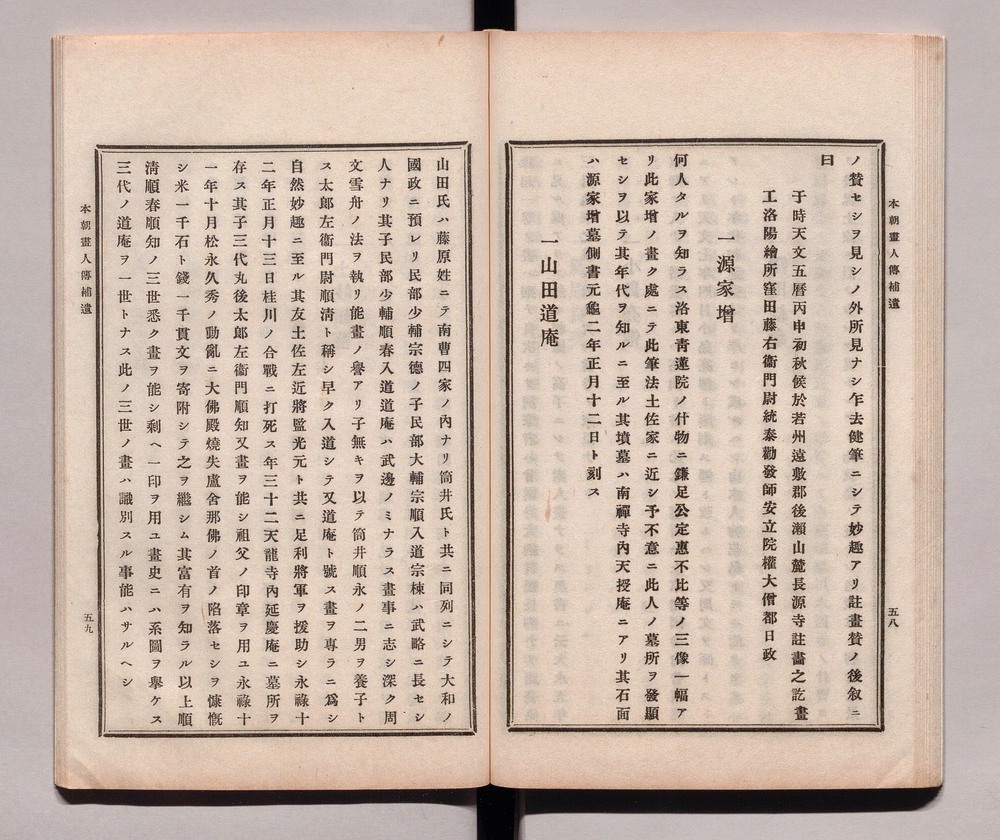 本朝畫人傳補遺
五八
ノ賛セシヲ見シノ外所見ナシ乍去健筆ニシテ妙趣アリ註畫賛ノ後叙ニ
曰
于時天文五曆丙申初秋候於若州遠敷郡後瀨山麓長源寺註畵之訖畫
工洛陽繪所窪田藤右衞門尉統泰勸發師安立院權大僧都日政
一源家增
何人タルヲ知ラス洛東青蓮院ノ什物ニ鎌足公定惠不比等ノ三像一幅ア
リ此家增ノ畫ク處ニテ此筆法土佐家ニ近シ予不意ニ此人ノ墓所ヲ發顯
セシヲ以テ其年代ヲ知ルニ至ル其墳墓ハ南禪寺內天授庵ニアリ其石面
ハ源家增墓側書元龜二年正月十二日ト刻ス
一山田道庵
山田氏ハ藤原姓ニテ南曹四家ノ內ナリ筒井氏ト共ニ同列ニシテ大和ノ
國政ニ預レリ民部少輔宗德ノ子民部大輔宗順入道宗棟ハ武略ニ長セシ
人ナリ其子民部少輔順春入道道庵ハ武邊ノミナラス畫事ニ志シ深ク周
文雪舟ノ法ヲ執リ能畫ノ譽アリ子無キヲ以テ筒井順永ノ二男ヲ養子ト
ス太郎左衞門尉順淸ト稱シ早ク入道シテ又道庵ト號ス畫ヲ專ラニ爲シ
自然妙趣ニ至ル其友土佐左近將監光元ト共ニ足利將軍ヲ援助シ永祿十
二年正月十三日桂川ノ合戰ニ打死ス年三十二天龍寺內延慶庵ニ墓所ヲ
存ス其子三代丸後太郎左衞門順知又畫ヲ能シ祖父ノ印章ヲ用ユ永祿十
一年十月松永久秀ノ動亂ニ大佛殿燒失盧舍那佛ノ首ノ陷落セシヲ慷慨
シ米一千石ト錢一千貫文ヲ寄附シテ之ヲ繼シム其富有ヲ知ラル以上順
淸順春順知ノ三世悉ク畫ヲ能シ剩ヘ一印ヲ用ユ畫史ニハ系圖ヲ擧ケス
三代ノ道庵ヲ一世トナス此ノ三世ノ畫ハ識別スル事能ハサルヘシ
本朝畫人傳補遺
五九